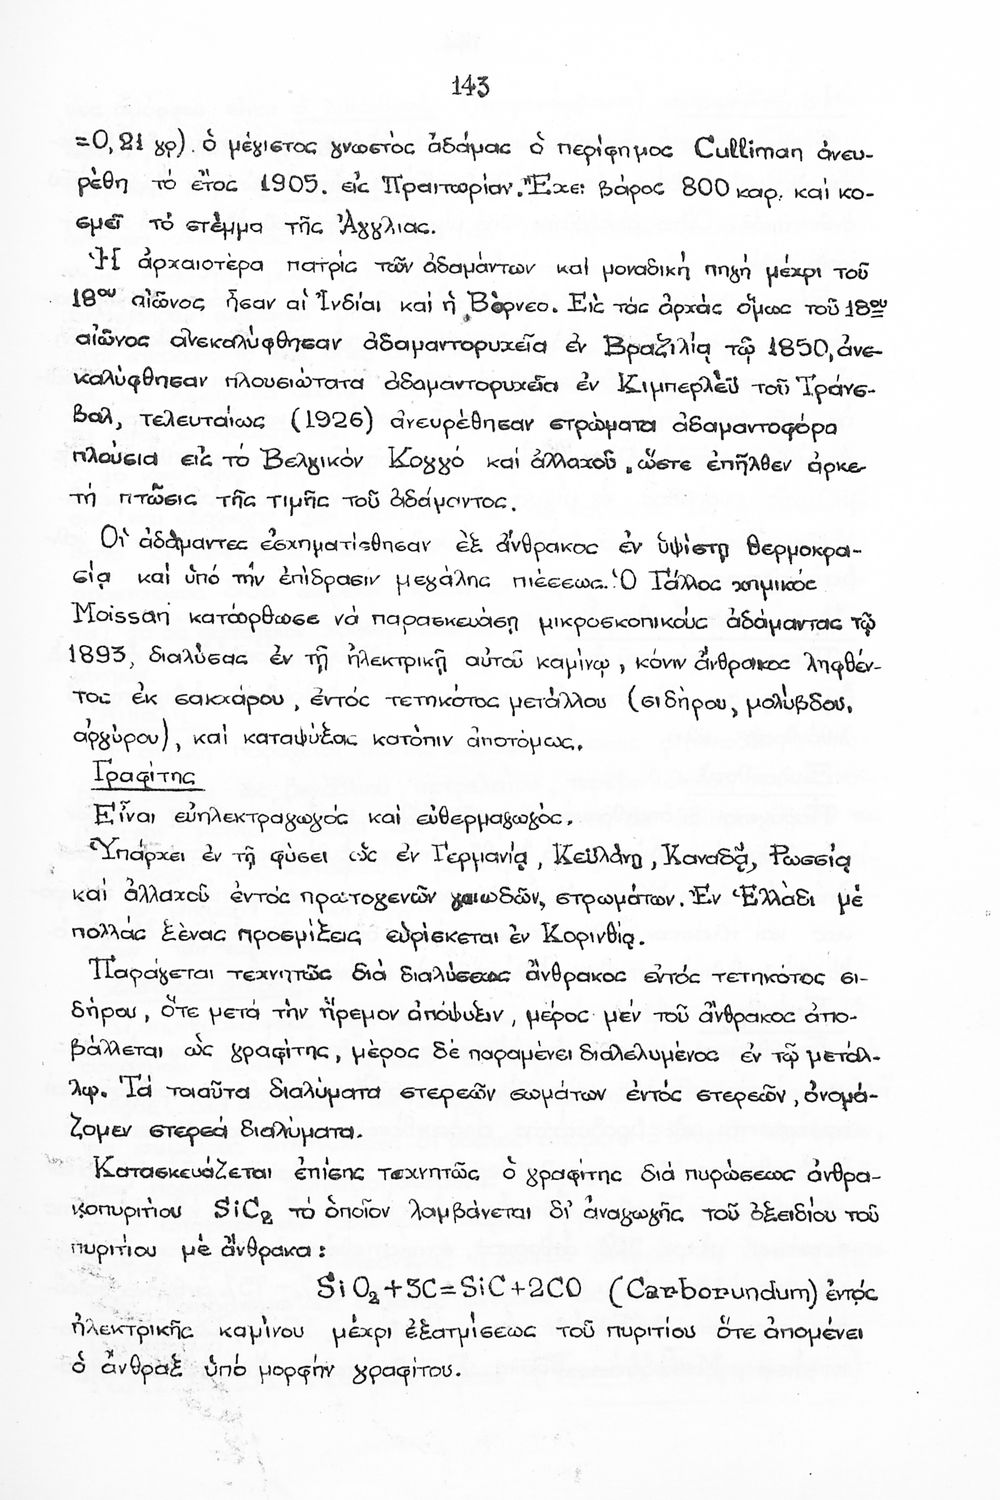 143
=0,21 γρ). ὁ μέγιστος γνωστὸς ἀδάμας ὁ περίφημος Culliman ἀνευ-
ρέθη τὸ ἔτος 1905. εἰς Πραιτωρίαν. Ἔχει βάρος 800 καρ. καὶ κο-
σμεῖ τὸ στέμμα τῆς Ἀγγλίας.
Ἡ ἀρχαιοτέρα πατρὶς τῶν ἀδαμάντων καὶ μοναδικὴ πηγὴ μέχρι τοῦ
18ου αἰῶνος ἦσαν αἱ Ἰνδίαι καὶ ἡ Βόρνεο. Εἰς τὰς ἀρχὰς ὅμως τοῦ 18ου
αἰῶνος ἀνεκαλύφθησαν ἀδαμαντορυχεῖα ἐν Βραζιλίᾳ τῷ 1850, ἀνε-
καλύφθησαν πλουσιώτατα ἀδαμαντορυχεῖα ἐν Κιμπερλέϋ τοῦ Τράνσ-
βαλ, τελευταίως (1926) ἀνευρέθησαν στρώματα ἀδαμαντοφόρα
πλούσια εἰς τὸ Βελγικὸν Κογγό καὶ ἀλλαχοῦ, ὥστε ἐπῆλθεν ἀρκε-
τὴ πτῶσις τῆς τιμῆς τοῦ ἀδάμαντος.
Οἱ ἀδάμαντες ἐσχηματίσθησαν ἐξ ἄνθρακος ἐν ὑψίστῃ θερμοκρα-
σίᾳ καὶ ὑπὸ τὴν ἐπίδρασιν μεγάλης πιέσεως. Ὁ Γάλλος χημικὸς
Moissan κατώρθωσε νὰ παρασκευάσῃ μικροσκοπικοὺς ἀδάμαντας τῷ
1893, διαλύσας ἐν τῇ ἠλεκτρικῇ αὐτοῦ καμίνῳ, κόνιν ἄνθρακος ληφθέν-
τος ἐκ σακχάρου, ἐντὸς τετηκότος μετάλλου (σιδήρου, μολύβδου,
ἀργύρου), καὶ καταψύξας κατόπιν ἀποτόμως.
Γραφίτης
Εἶναι εὐηλεκτραγωγὸς καὶ εὐθερμαγωγὸς.
Ὑπάρχει ἐν τῇ φύσει ὡς ἐν Γερμανίᾳ, Κεϋλάνῃ, Καναδᾷ, Ρωσσίᾳ
καὶ ἀλλαχοῦ ἐντὸς πρωτογενῶν γαιωδῶν, στρωμάτων. Ἐν Ἑλλάδι μὲ
πολλὰς ξένας προσμίξεις εὑρίσκεται ἐν Κορινθίᾳ.
Παράγεται τεχνητῶς διὰ διαλύσεως ἄνθρακος ἐντὸς τετηκότος σι-
δήρου, ὅτε μετὰ τὴν ἤρεμον ἀπόψυξιν, μέρος μὲν τοῦ ἄνθρακος ἀπο-
βάλλεται ὡς γραφίτης, μέρος δὲ παραμένει διαλελυμένος ἐν τῷ μετάλ-
λῳ. Τὰ τοιαῦτα διαλύματα στερεῶν σωμάτων ἐντὸς στερεῶν, ὀνομά-
ζομεν στερεά διαλύματα.
Κατασκευάζεται ἐπίσης τεχνητῶς ὁ γραφίτης διὰ πυρώσεως ἀνθρα-
κοπυριτίου SiC2 τὸ ὁποῖον λαμβάνεται δι' ἀναγωγῆς τοῦ ὀξειδίου τοῦ
πυριτίου μὲ ἄνθρακα:
SiO2+3C=SiC+2CO (Carborundum) ἐντὸς
ἠλεκτρικῆς καμίνου μέχρι ἐξατμίσεως τοῦ πυριτίου ὅτε ἀπομένει
ὁ ἄνθραξ ὑπὸ μορφὴν γραφίτου.